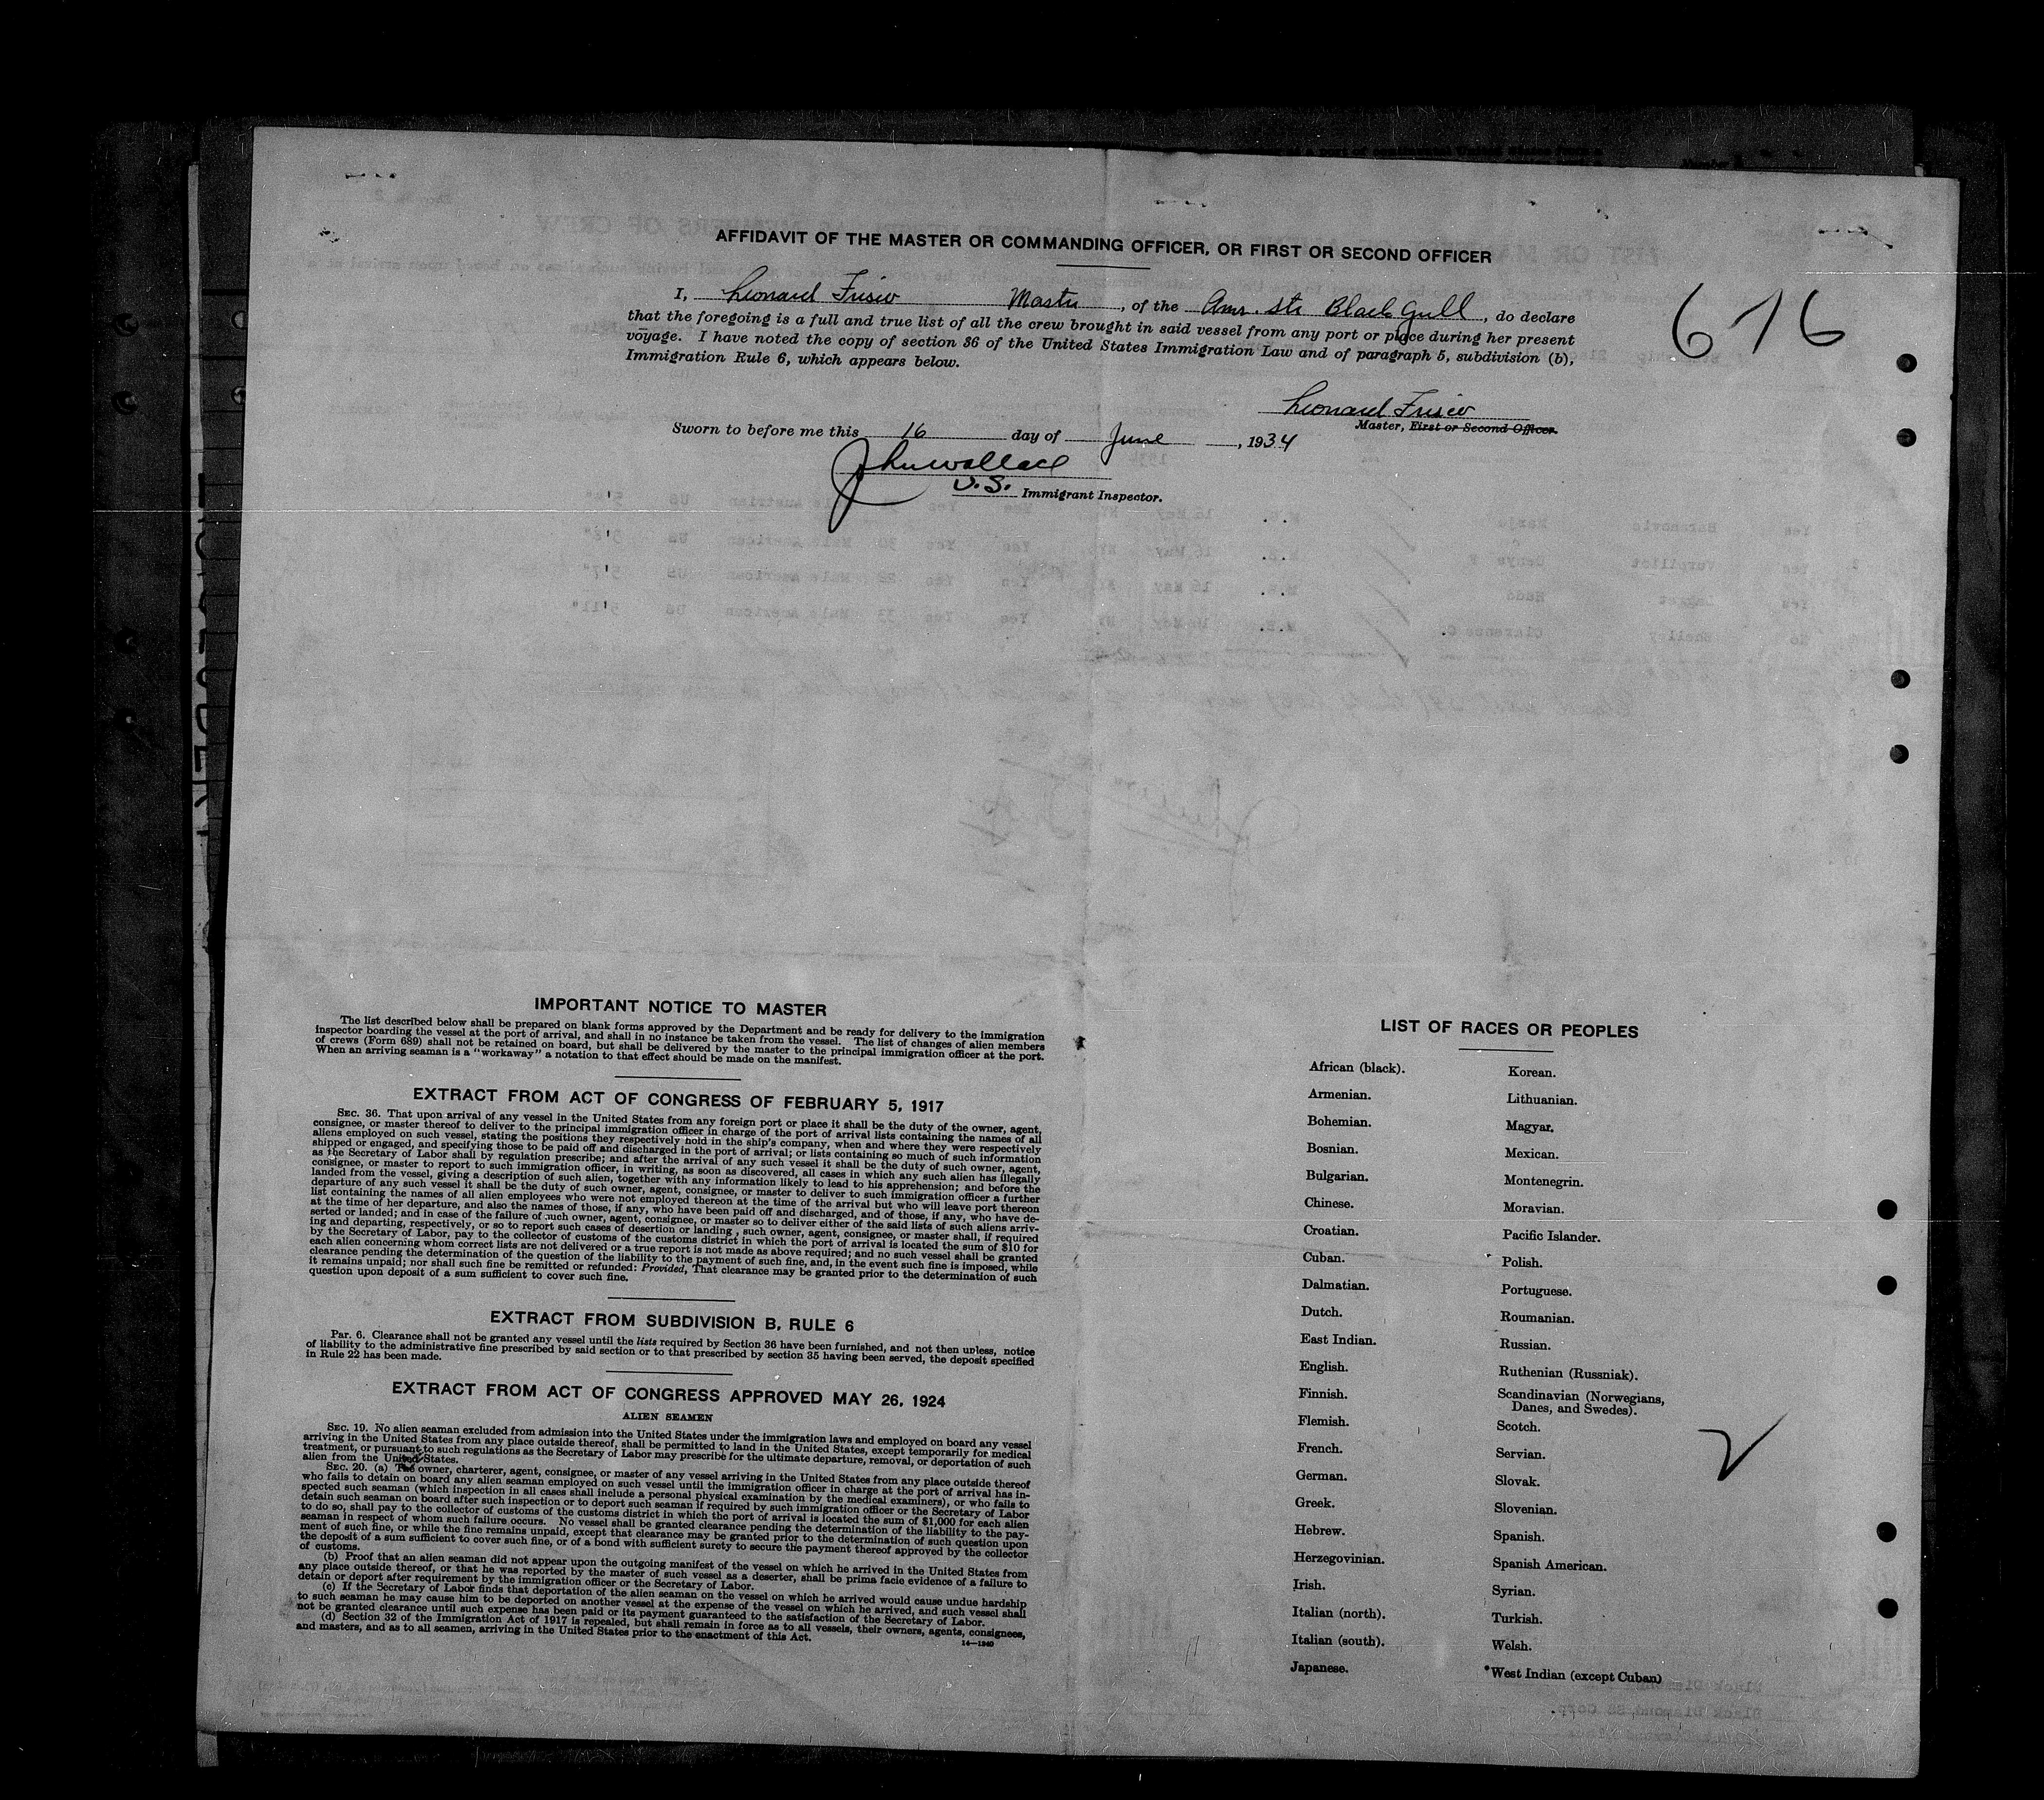 AFFIDAVIT OF THE MASTER OR COMMANDING OFFICER, OR FIRST OR SECOND OFFICER
I, Leonard Frisco Master, of the Am. Str Black Gull, do declare
that the foregoing is a full and true list of all the crew brought in said vessel from any port or place during her present
voyage. I have noted the copy of section 36 of the United States Immigration Law and of paragraph 5, subdivision (b),
Immigration Rule 6, which appears below.
676
Leonard Frisco
Master, First or Second Officer.
Sworn to before me this 16 day of June, 1934
Jhnwallace
U.S. Immigrant Inspector.
IMPORTANT NOTICE TO MASTER
The list described below shall be prepared on blank forms approved by the Department and be ready for delivery to the immigration
inspector boarding the vessel at the port of arrival, and shall in no instance be taken from the vessel. The list of changes of alien members
of crews (Form 689) shall not be retained on board, but shall be delivered by the master to the principal immigration officer at the port.
When an arriving seaman is a "workaway" a notation to that effect should be made on the manifest.
EXTRACT FROM ACT OF CONGRESS OF FEBRUARY 5, 1917
SEC. 36. That upon arrival of any vessel in the United States from any foreign port or place it shall be the duty of the owner, agent,
consignee, or master thereof to deliver to the principal immigration officer in charge of the port of arrival lists containing the names of all
aliens employed on such vessel, stating the positions they respectively hold in the ship's company, when and where they were respectively
shipped or engaged, and specifying those to be paid off and discharged in the port of arrival; or lists containing so much of such information
as the Secretary of Labor shall by regulation prescribe; and after the arrival of any such vessel it shall be the duty of such owner, agent,
consignee, or master to report to such immigration officer, in writing, as soon as discovered, all cases in which any such alien has illegally
landed from the vessel, giving a description of such alien, together with any information likely to lead to his apprehension; and before the
departure of any such vessel it shall be the duty of such owner, agent, consignee, or master to deliver to such immigration officer a further
list containing the names of all alien employees who were not employed thereon at the time of the arrival but who will leave port thereon
at the time of her departure, and also the names of those, if any, who have been paid off and discharged, and of those, if any, who have de-
serted or landed; and in case of the failure of such owner, agent, consignee, or master so to deliver either of the said lists of such aliens arriv-
ing and departing, respectively, or so to report such cases of desertion or landing, such owner, agent, consignee, or master shall, if required
by the Secretary of Labor, pay to the collector of customs of the customs district in which the port of arrival is located the sum of $10 for
each alien concerning whom correct lists are not delivered or a true report is not made as above required; and no such vessel shall be granted
clearance pending the determination of the question of the liability to the payment of such fine, and, in the event such fine is imposed, while
it remains unpaid; nor shall such fine be remitted or refunded: Provided, That clearance may be granted prior to the determination of such
question upon deposit of a sum sufficient to cover such fine.
EXTRACT FROM SUBDIVISION B, RULE 6
Par. 6. Clearance shall not be granted any vessel until the lists required by Section 36 have been furnished, and not then unless, notice
of liability to the administrative fine prescribed by said section or to that prescribed by section 35 having been served, the deposit specified
in Rule 22 has been made.
EXTRACT FROM ACT OF CONGRESS APPROVED MAY 26, 1924
ALIEN SEAMEN
SEC. 19. No alien seaman excluded from admission into the United States under the immigration laws and employed on board any vessel
arriving in the United States from any place outside thereof, shall be permitted to land in the United States, except temporarily for medical
treatment, or pursuant to such regulations as the Secretary of Labor may prescribe for the ultimate departure, removal, or deportation of such
alien from the United States.
SEC. 20. (a) The owner, charterer, agent, consignee, or master of any vessel arriving in the United States from any place outside thereof
who fails to detain on board any alien seaman employed on such vessel until the immigration officer in charge at the port of arrival has in-
spected such seaman (which inspection in all cases shall include a personal physical examination by the medical examiners), or who fails to
detain such seaman on board after such inspection or to deport such seaman if required by such immigration officer or the Secretary of Labor
to do so, shall pay to the collector of customs of the customs district in which the port of arrival is located the sum of $1,000 for each alien
seaman in respect of whom such failure occurs. No vessel shall be granted clearance pending the determination of the liability to the pay-
ment of such fine, or while the fine remains unpaid, except that clearance may be granted prior to the determination of such question upon
the deposit of a sum sufficient to cover such fine, or of a bond with sufficient surety to secure the payment thereof approved by the collector
of customs.
(b) Proof that an alien seaman did not appear upon the outgoing manifest of the vessel on which he arrived in the United States from
any place outside thereof, or that he was reported by the master of such vessel as a deserter, shall be prima facie evidence of a failure to
detain or deport after requirement by the immigration officer or the Secretary of Labor.
(c) If the Secretary of Labor finds that deportation of the alien seaman on the vessel on which he arrived would cause undue hardship
to such seaman he may cause him to be deported on another vessel at the expense of the vessel on which he arrived, and such vessel shall
not be granted clearance until such expense has been paid or its payment guaranteed to the satisfaction of the Secretary of Labor.
(d) Section 32 of the Immigration Act of 1917 is repealed, but shall remain in force as to all vessels, their owners, agents, consignees,
and masters, and as to all seamen, arriving in the United States prior to the enactment of this Act.
14—1940
LIST OF RACES OR PEOPLES
African (black).
Armenian.
Bohemian.
Bosnian.
Bulgarian.
Chinese.
Croatian.
Cuban.
Dalmatian.
Dutch.
East Indian.
English.
Finnish.
Flemish.
French.
German.
Greek.
Hebrew.
Herzegovinian.
Irish.
Italian (north).
Italian (south).
Japanese.
Korean.
Lithuanian.
Magyar.
Mexican.
Montenegrin.
Moravian.
Pacific Islander.
Polish.
Portuguese.
Roumanian.
Russian.
Ruthenian (Russniak).
Scandinavian (Norwegians,
Danes, and Swedes).
Scotch.
Servian.
Slovak.
Slovenian.
Spanish.
Spanish American.
Syrian.
Turkish.
Welsh.
West Indian (except Cuban)